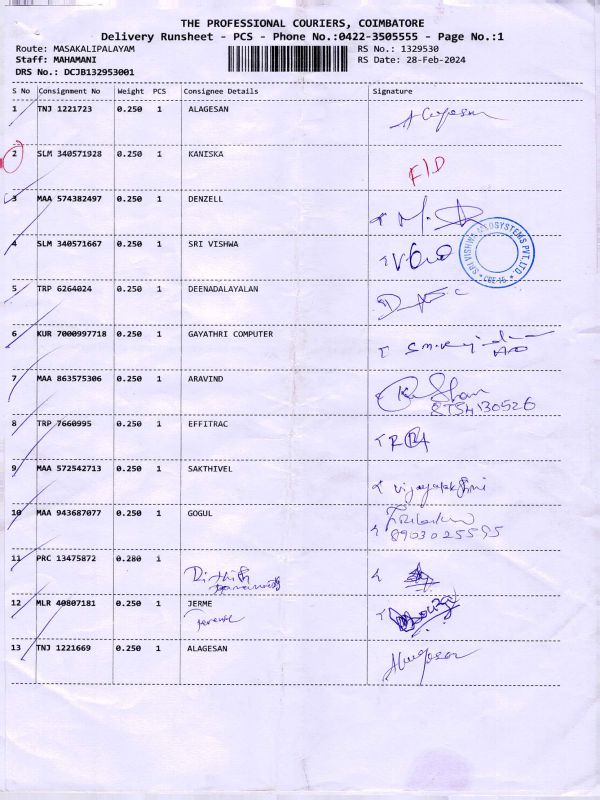 THE PROFESSIONAL COURIERS, COIMBATORE
Delivery Runsheet - PCS - Phone No.:0422-3505555 - Page No.:1
Route: MASAKALIPALAYAM RS No.: 1329530
Staff: MAHAMANI RS Date: 28-Feb-2024
DRS No.: DCJB132953001
S No Consignment No Weight PCS Consignee Details Signature
1 TNJ 1221723 0.250 1 ALAGESAN
2 SLM 340571928 0.250 1 KANISKA
F/D
3 MAA 574382497 0.250 1 DENZELL
4 SLM 340571667 0.250 1 SRI VISHWA
SRI VISHWA MEDSYSTEMS PVT. LTD. * CBE-15. *
5 TRP 6264024 0.250 1 DEENADALAYALAN
6 KUR 7000997718 0.250 1 GAYATHRI COMPUTER
7 MAA 863575306 0.250 1 ARAVIND
8 TRP 7660995 0.250 1 EFFITRAC
9 MAA 572542713 0.250 1 SAKTHIVEL
10 MAA 943687077 0.250 1 GOGUL
8903025595
11 PRC 13475872 0.280 1
12 MLR 40807181 0.250 1 JERME
13 TNJ 1221669 0.250 1 ALAGESAN